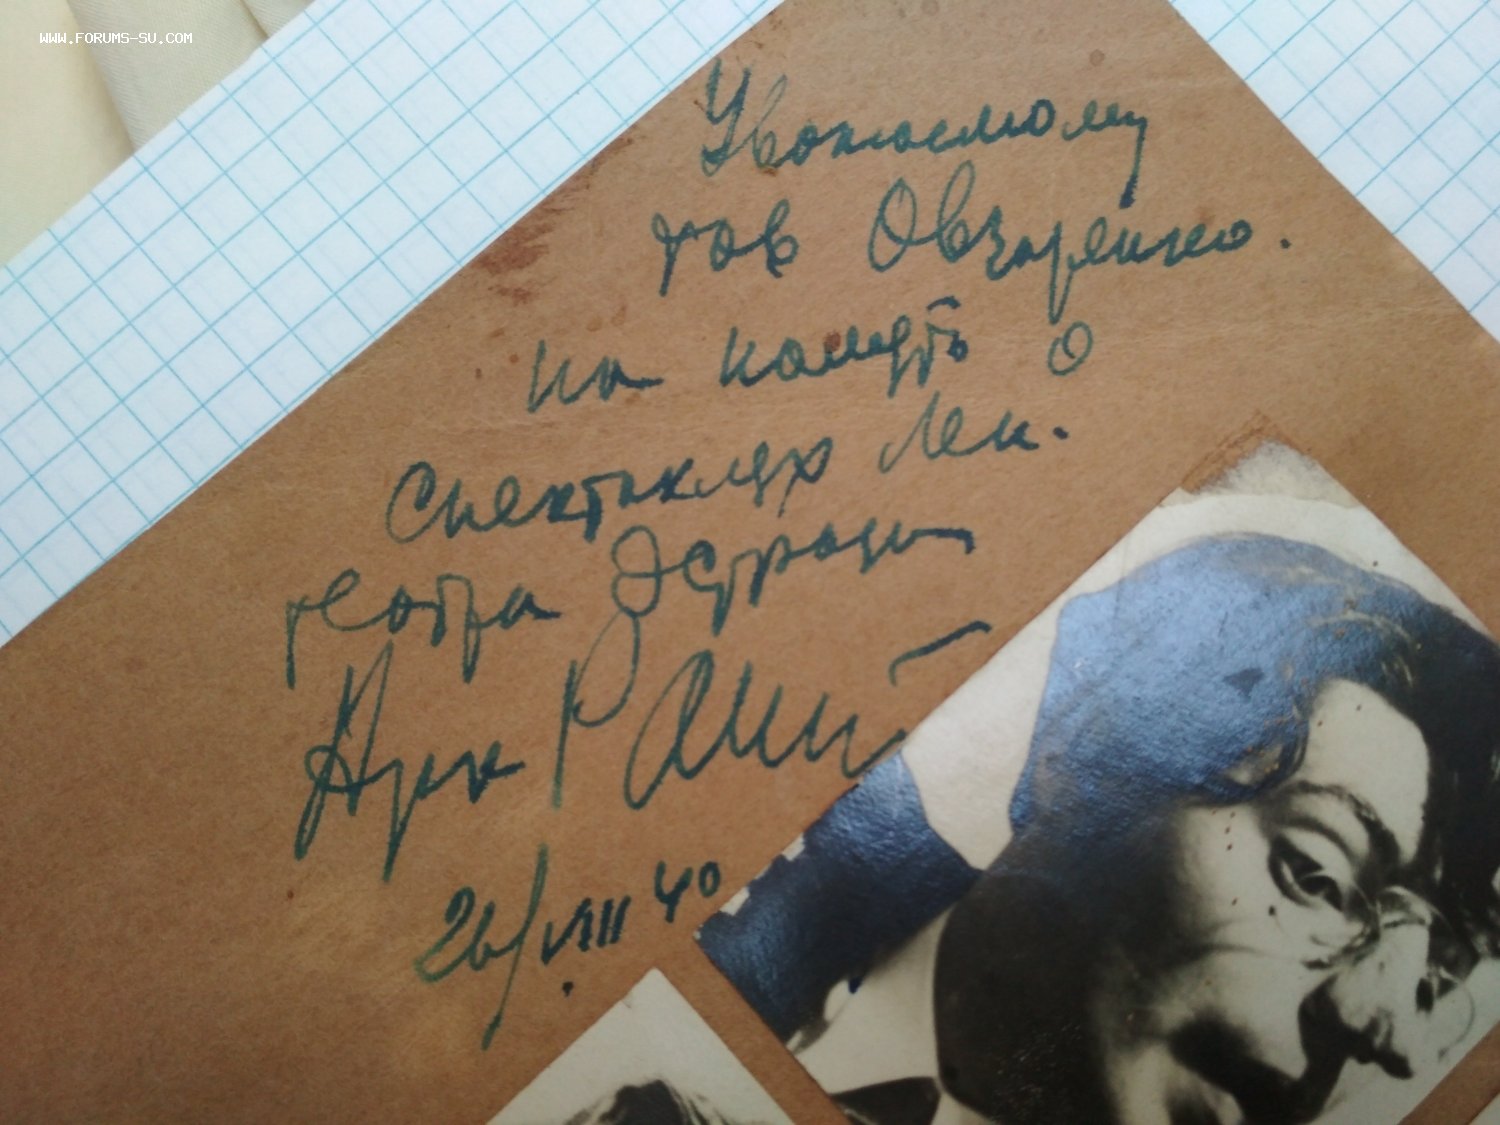 WWW.FORUMS-SU.COM
Уважаемому
тов Овчаренко.
на память о
спектаклях Лен.
театра Эстрады
Арк Райкин
26/VIII 40